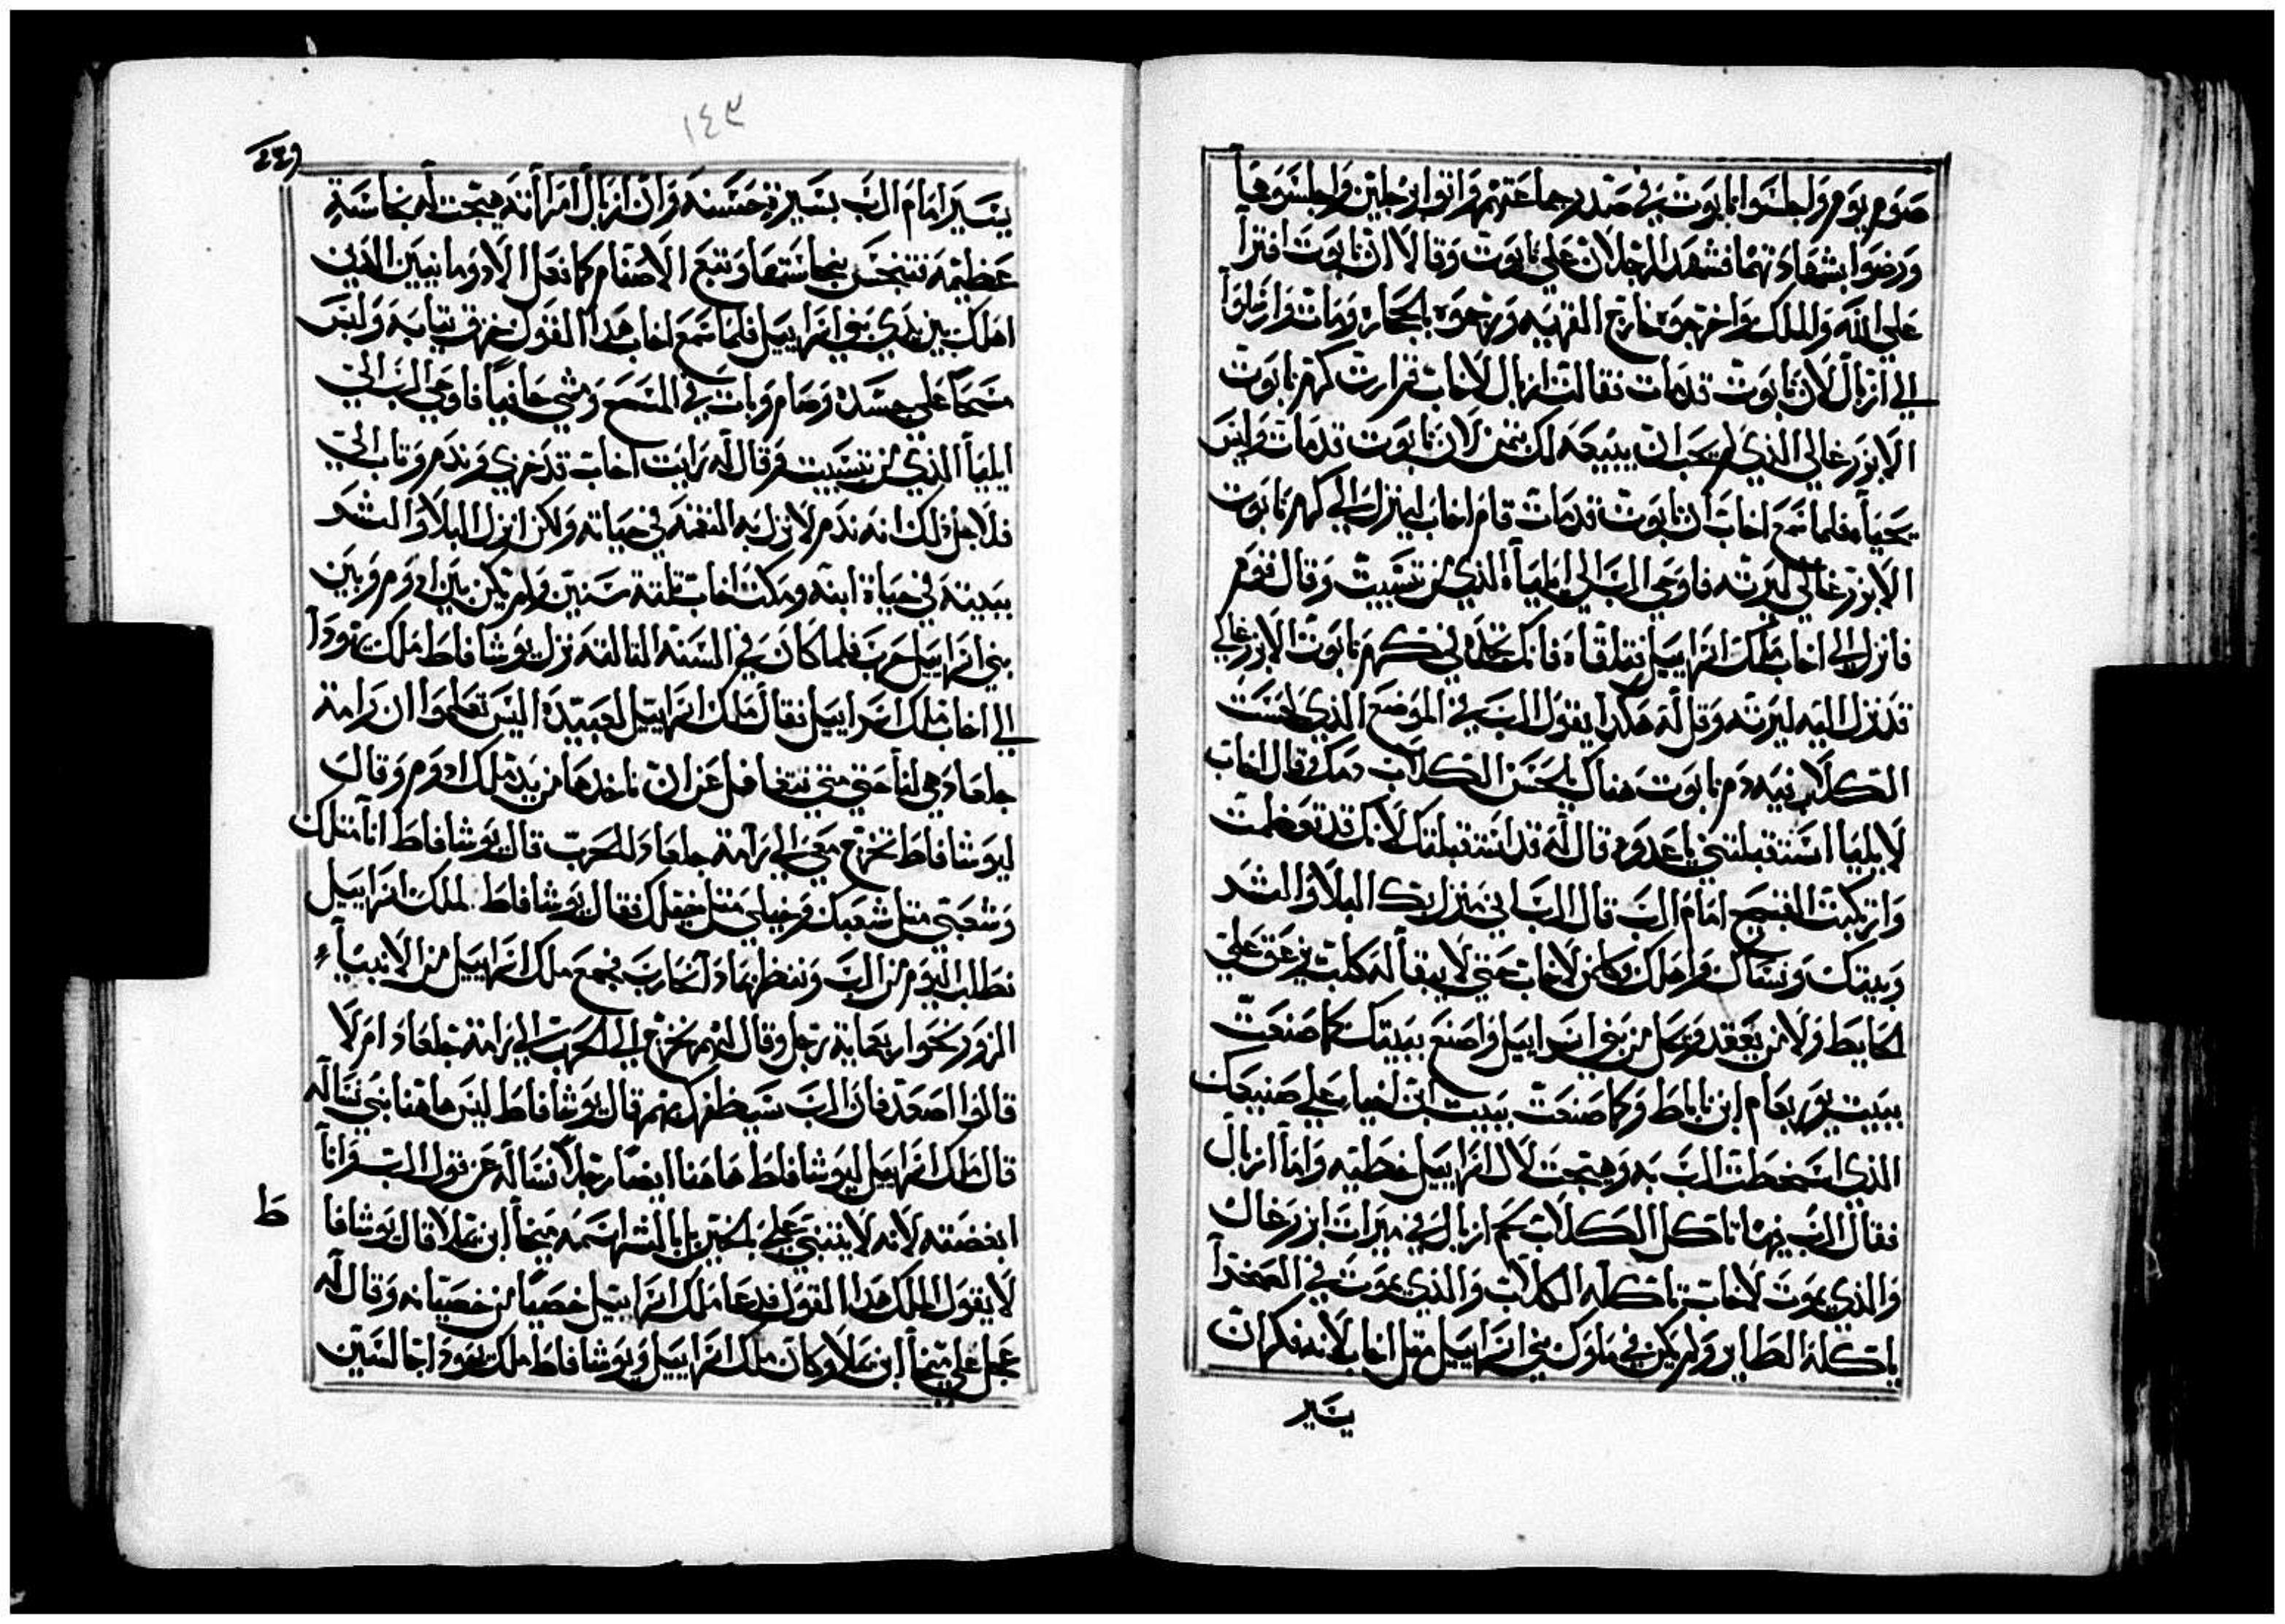 صوم يوم واجلسوا نابوت في صدر جماعتهم واتوا برجلين واجلسوهما
ورضوا بشهادتهما فشهد الرجلان على نابوت وقالا ان نابوت افترا
على الله والملك واخرجوه خارج القريه ورجموه بالحجاره ومات وارسلوا
الى ازبال لان نابوت قد مات فقالت ازبال لاخاب قم ارث كرم نابوت
الايزرغالي الذي لم يحب ان يبيعه لك بثمن لان نابوت قد مات وليس
بحيا فلما سمع اخاب ان نابوت قد مات قام اخاب لينزل الى كرم نابوت
الايزرغالي ليرثه فاوحى الرب الى ايليا الذي من تسبيت وقال قوم
فانزل الى اخاب ملك اسراييل فتلقاه فانك تجده في كرم نابوت الايزرغالي
قد نزل اليه ليرثه وقل له هكدا يقول الرب في الموضع الذي لحست
الكلاب فيه دم نابوت هناك يلحسن الكلاب دمك وقال اخاب
لايليا استقبلتني يا عدوه قال له قد استقبلتك لانك قد تعظمت
وارتكبت القبيح امام الرب قال الرب اني منزل بك البلا والشر
وبيتك ونساك واهلك وكلمن لاخاب حتى لا يبقا له كلب يزعق على
الحايط ولا من يعقد ويحل من بني اسراييل واصنع ببيتك كما صنعت
ببيت يوربعام ابن ناباط وكما صنعت ببيت ابن احيا على صنيعك
الذي اسخطت الرب به وهيجت لال اسراييل خطيه واما ازبال
فقال الرب فيها تاكل الكلاب لحم ازبال في ميرات ايزرغال
والذي يموت لاخاب تاكله الكلاب والذي يموت في الصحرا
ياكله الطاير ولم يكن في ملوك بني اسراييل مثل اخاب لانه فكر ان
يسير
١٤٣
يسير امام الرب بسيرة حسنه وان ازبال امراته هيجت له نجاسة
عظيمه فتنجس بنجاستها وتبع الاصنام كما فعل الادومانيين الذين
اهلك بين يدي بني اسراييل فلما سمع اخاب هدا القول خرق تيابه ولبس
مسحا على جسده وصام وبات في المسح ومشى حافيا فاوحى الرب الى
ايليا الذي من تسبيت وقال له رايت اخاب قد خزي وندم وتاب الي
فلاجل ذلك انه ندم لا انزل به النقمه في حياته ولكن انزل البلا والشر
ببيته في حياة ابنه ومكث اخاب ثلثة سنين ولم يكن بين ادوم وبين
بني اسراييل حرب فلما كان في السنه الثالثه نزل يوشافاط ملك يهودا
الى اخاب ملك اسراييل فقال ملك اسراييل لعبيده اليس تعلموا ان رامة
جلعاد هي لنا حتى متى نتغافل عن ان ناخدها من يد ملك ادوم وقال
ليوشافاط تخرج معي الى رامة جلعاد للحرب قال يوشافاط انا متلك
وشعبي متل شعبك وخيلي متل خيلك فقال يوشافاط لملك اسراييل
نطلب اليوم من الرب وننظر بماد انحارب فجمع ملك اسراييل من الانبياء
الزور نحو اربعماية رجل وقال لهم نخرج الى الحرب الى رامة جلعاد ام لا
قالوا اصعد فان الرب سيظفرك بهم قال يوشافاط ليس هاهنا نبي نساله
قال ملك اسراييل ليوشافاط هاهنا ايضا رجلا نساله عن قول الرب وانا
ابغضته لانه لا يتنبي علي بالخير بل بالشر اسمه ميخا ابن يملا قال يوشافا
ط
لا يقول الملك هدا القول فدعا ملك اسراييل خصيا من خصيانه وقال له
عجل علي بميخا ابن يملا وكان ملك اسراييل ويوشافاط ملك يهودا جالسين